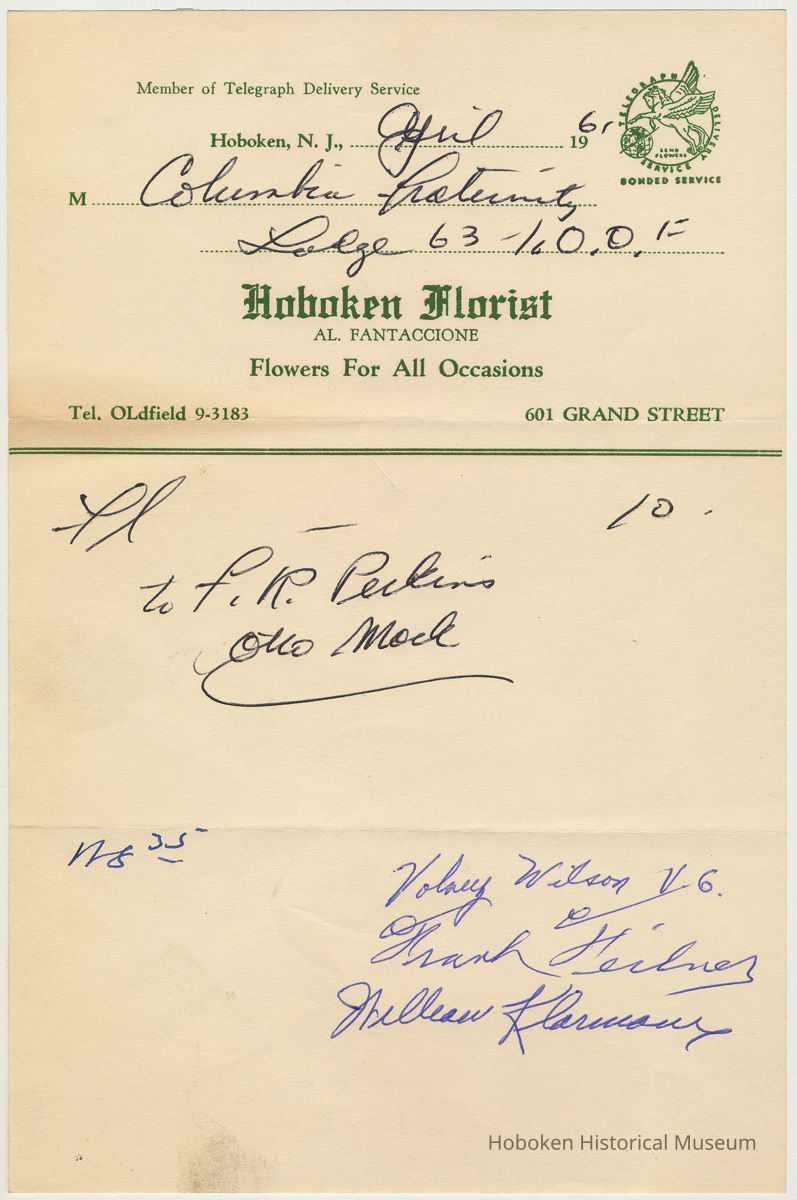 Member of Telegraph Delivery Service
Hoboken, N. J., April 1961
TELEGRAPH DELIVERY SERVICE
SEND FLOWERS
BONDED SERVICE
M Columbia Fraternity
Lodge 63 - I.O.O.F
Hoboken Florist
AL. FANTACCIONE
Flowers For All Occasions
Tel. OLdfield 9-3183 601 GRAND STREET
Fl — 10.
to F. R. Perkins
Otto Mock
35
Volney Wilson V.G.
Frank
William Klarmann
Hoboken Historical Museum